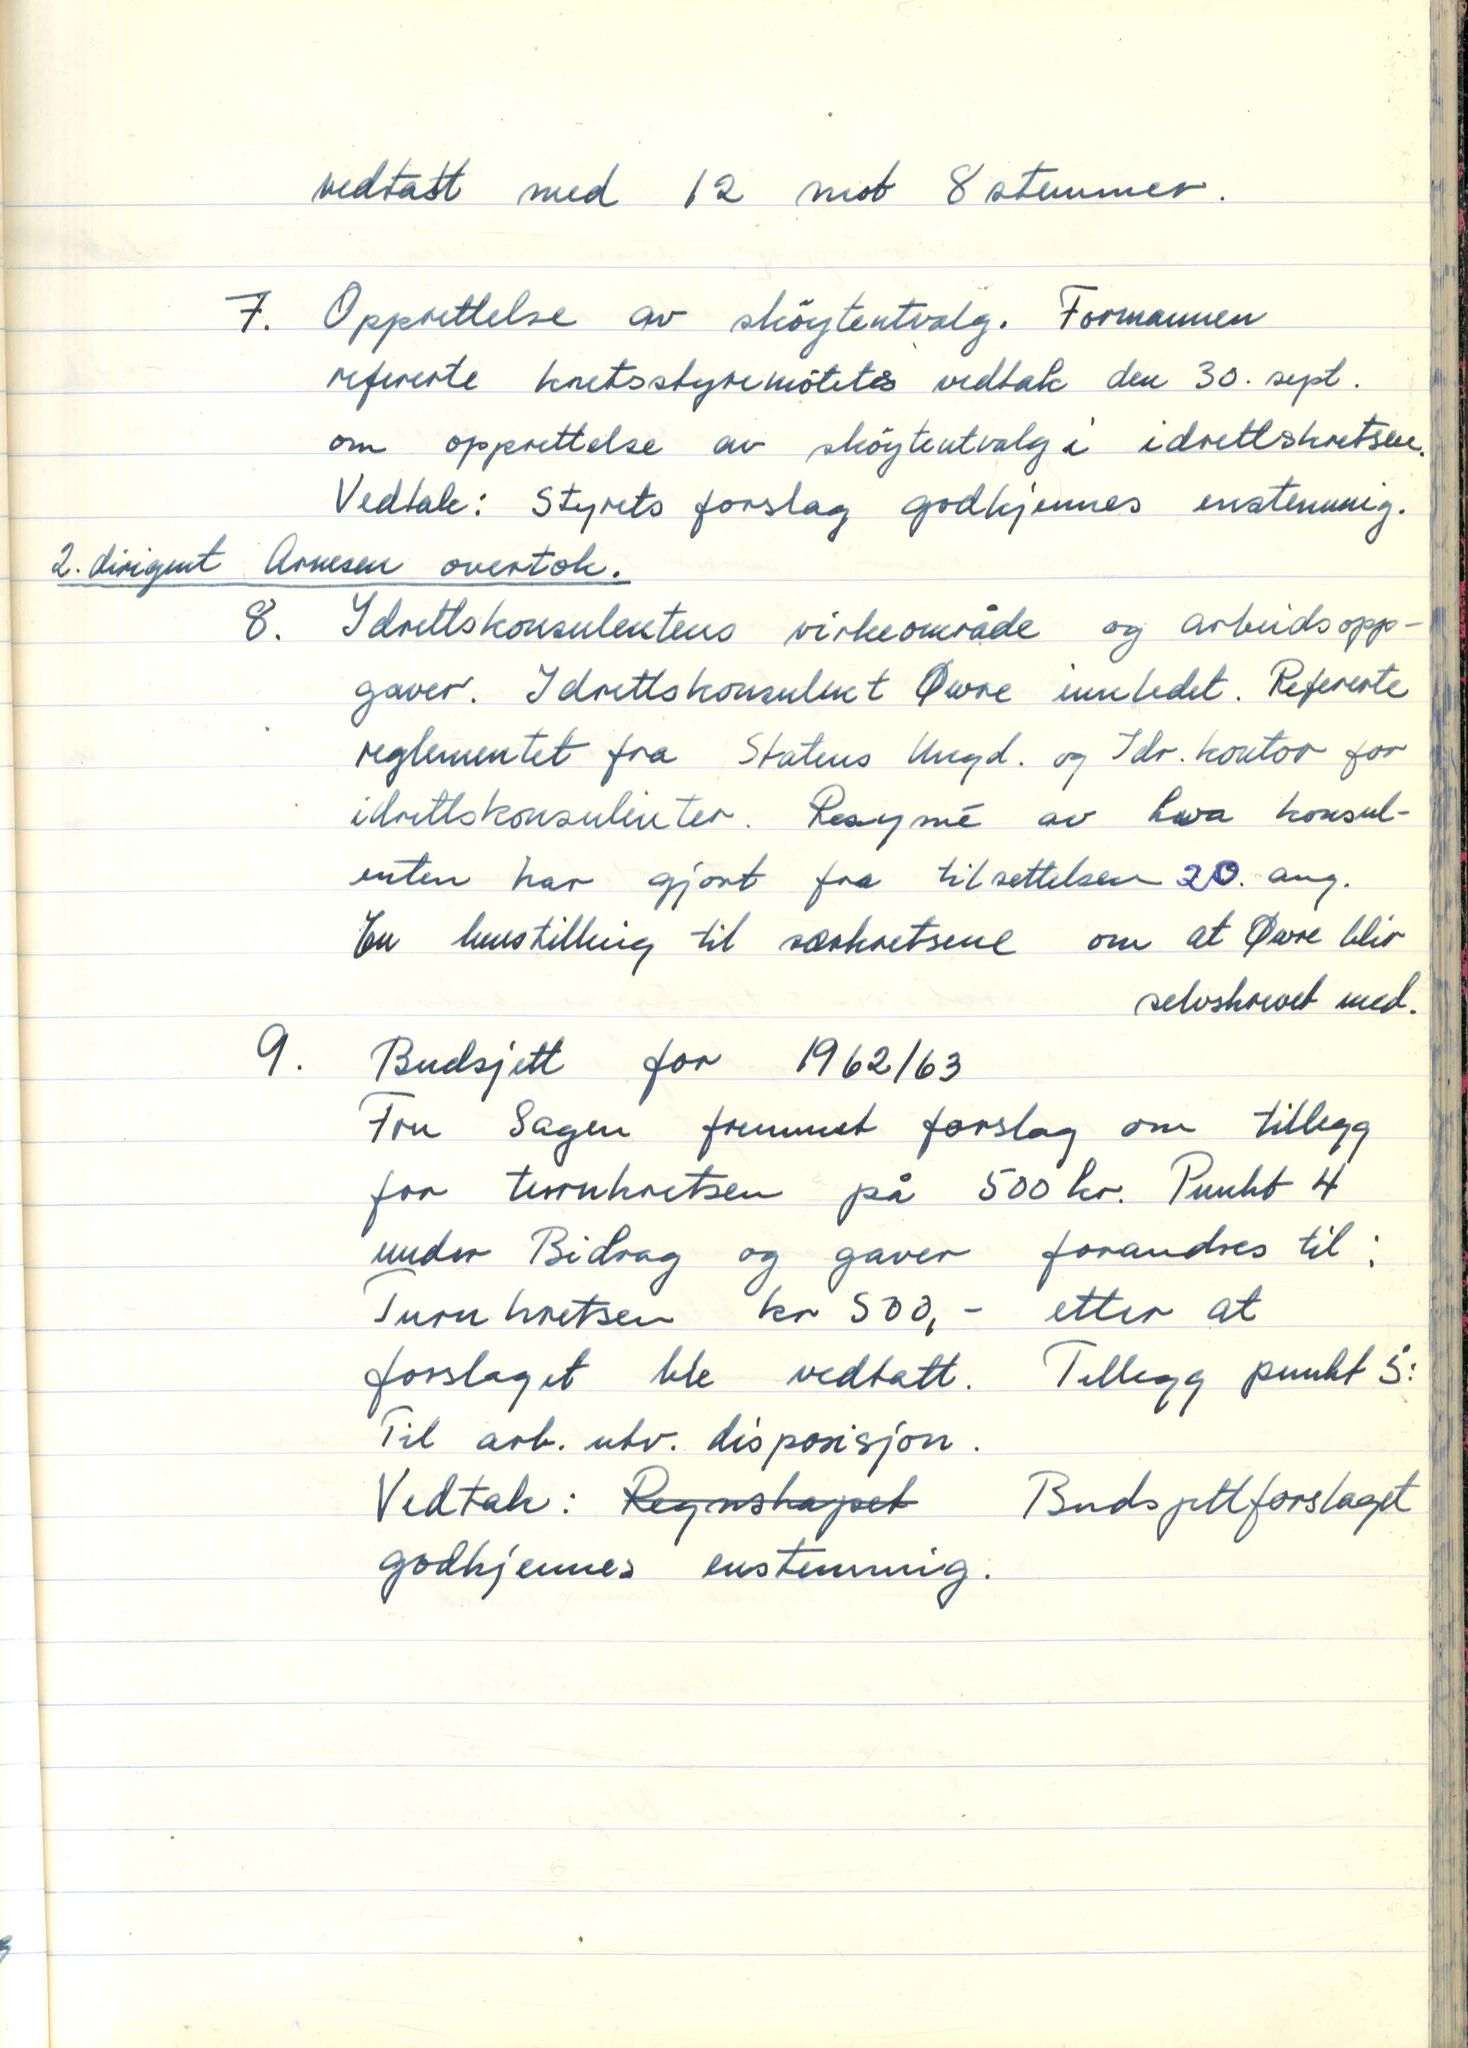 vedtatt med 12 mot 8 stemmer.
7. Opprettelse av sköyteutvalg. Formannen
refererte kretsstyremötets vedtak den 30. sept.
om opprettelse av sköyteutvalg i idrettskretsen.
Vedtak: Styrets forslag godkjennes enstemmig.
2. dirigent Arnesen overtok.
8. Idrettskonsulentens virkeområde og arbeidsopp-
gaver. Idrettskonsulent Øvre innledet. Refererte
reglementet fra Statens Ungd. og Idr. kontor for
idrettskonsulenter. Resymé av hva konsul-
enten har gjort fra tilsettelsen 20. aug.
En henstilling til særkretsene om at Øvre blir
selvskrevet med.
9. Budsjett for 1962/63
Fru Sagen fremmet forslag om tillegg
for turnkretsen på 500 kr. Punkt 4
under Bidrag og gaver forandres til:
Turnkretsen kr 500,- etter at
forslaget ble vedtatt. Tillegg punkt 5:
Til arb. utv. disposisjon.
Vedtak: Regnskapet Budsjettforslaget
godkjennes enstemmig.